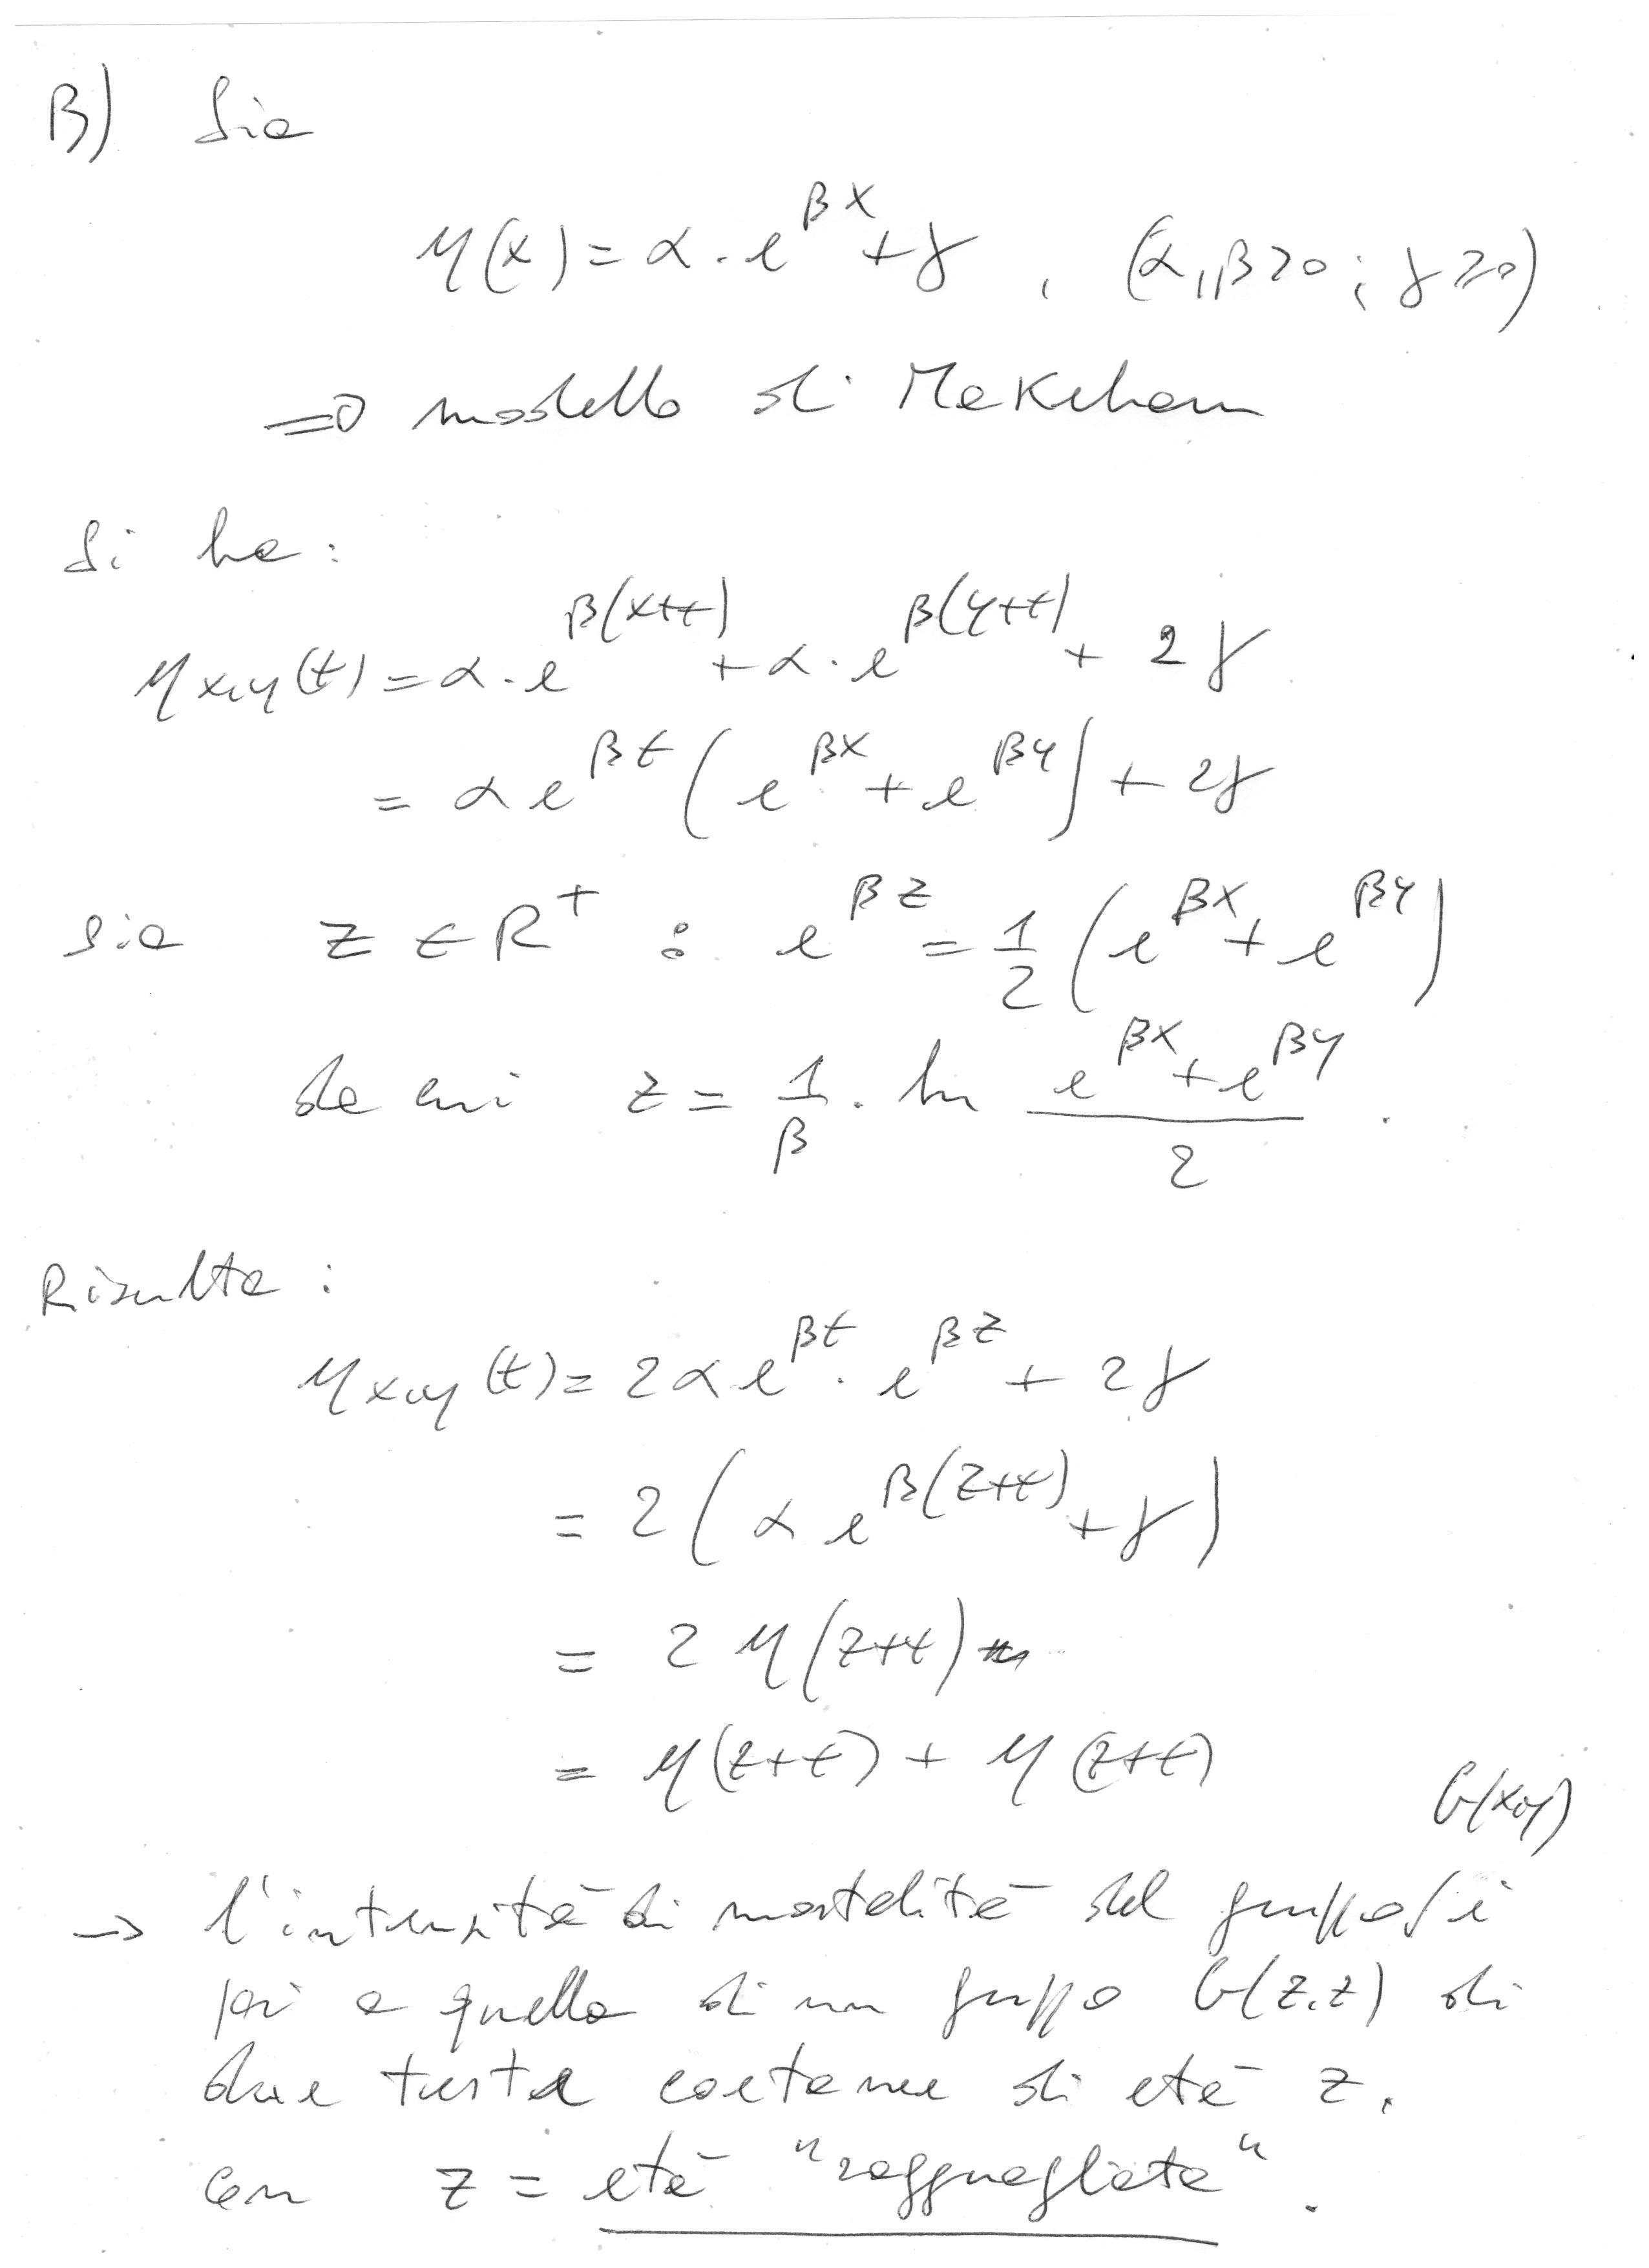 B) Sia
μ(x) = α · e^{βx} + γ , (α, β > 0 ; γ ≥ 0)
=> modello di Makeham
Si ha :
μ_{x,y}(t) = α · e^{β(x+t)} + α · e^{β(y+t)} + 2γ
= α e^{βt} ( e^{βx} + e^{βy} ) + 2γ
Sia z ∈ R^+ : e^{βz} = 1/2 ( e^{βx} + e^{βy} )
da cui z = 1/β · ln (e^{βx} + e^{βy})/2 .
Risulta :
μ_{x,y}(t) = 2α e^{βt} · e^{βz} + 2γ
= 2 ( α e^{β(z+t)} + γ )
= 2 μ(z+t)
= μ(z+t) + μ(z+t)
G(x,y)
→ l'intensità di mortalità del gruppo è
pari a quella di un gruppo G(z,z) di
due teste coetanee di età z,
con z = età "ragguagliata".